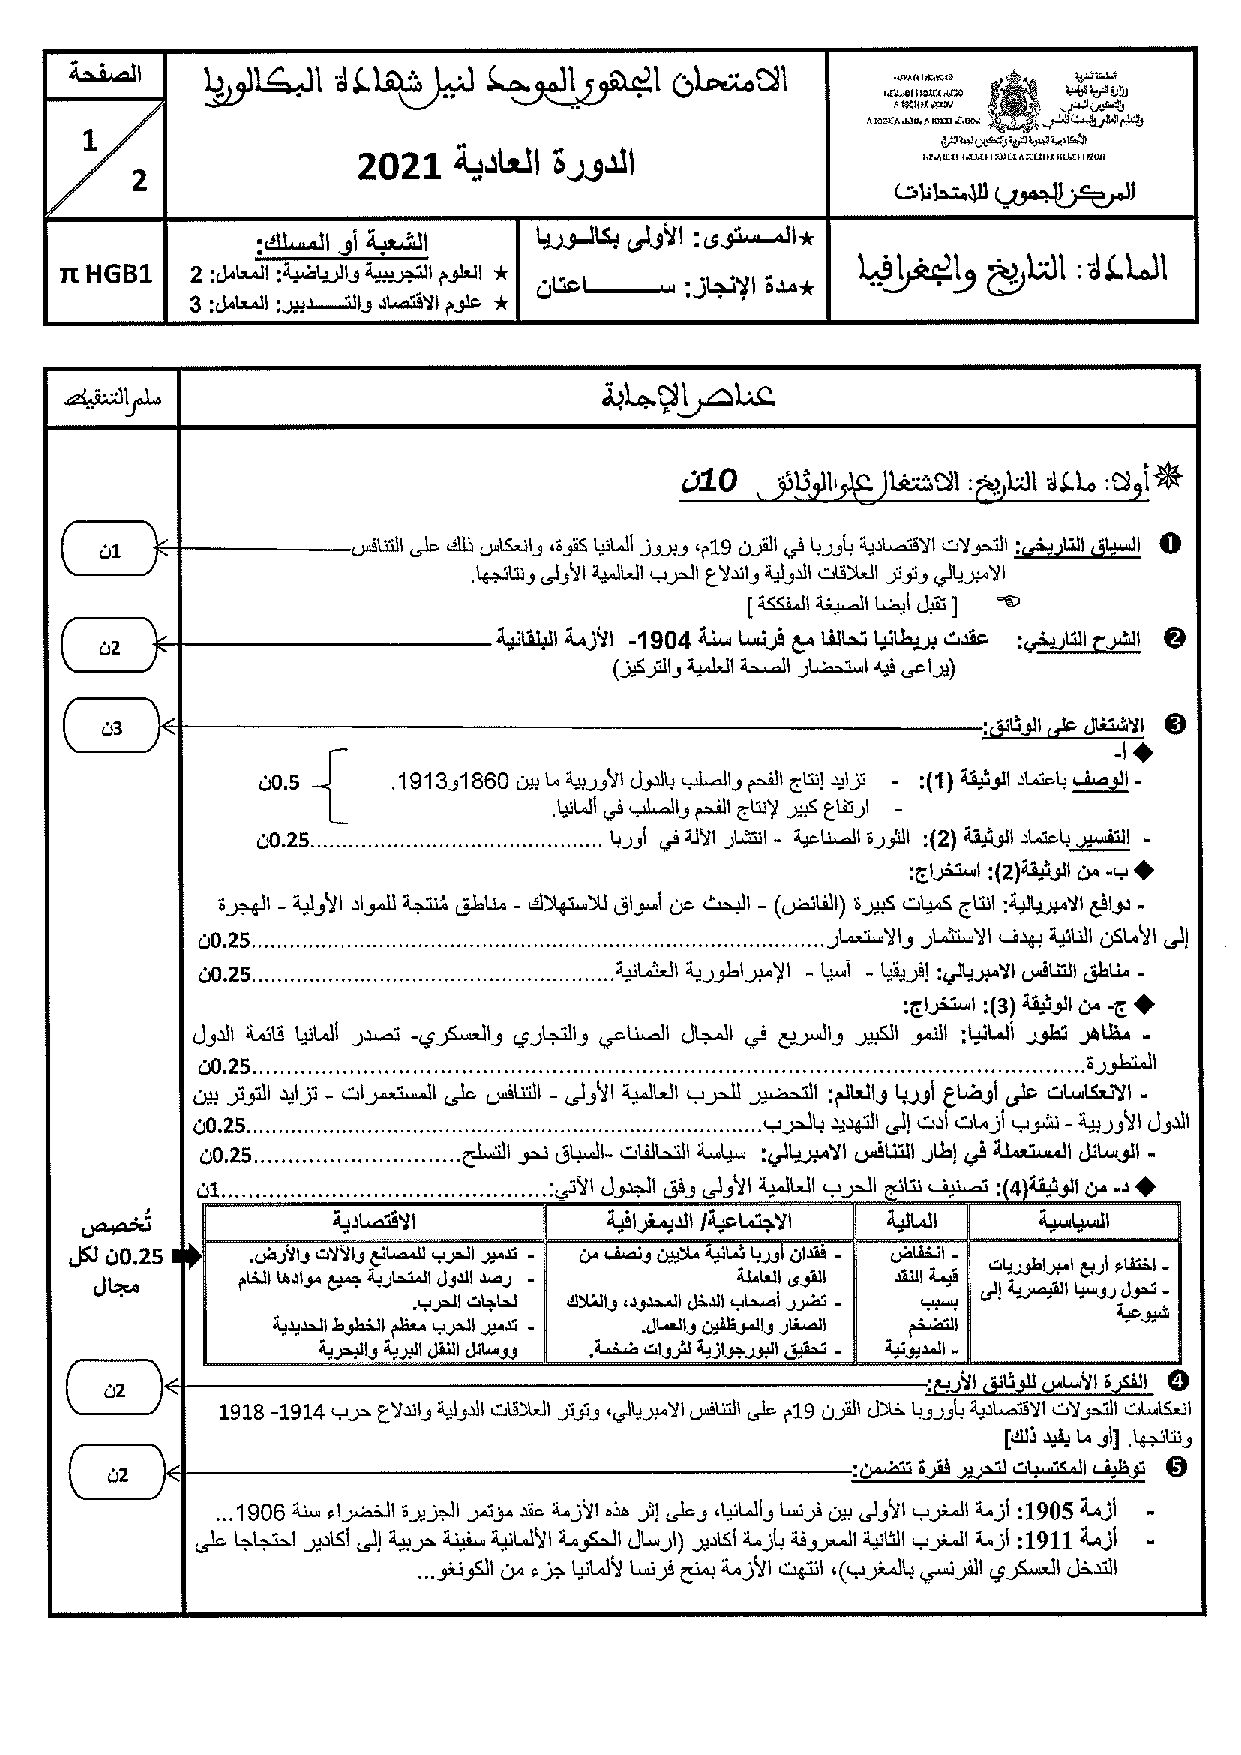 الصفحة
1
2
الامتحان الجهوي الموحد لنيل شهادة البكالوريا
الدورة العادية 2021
المركز الجهوي للامتحانات
π HGB1
الشعبة أو المسلك:
★ العلوم التجريبية والرياضية: المعامل: 2
★ علوم الاقتصاد والتـــــدبير: المعامل: 3
★المـسـتوى: الأولى بكالــوريا
★مدة الإنجاز: ســـــــــاعتان
المادة: التاريخ والجغرافيا
عناصر الإجابة
سلم التنقيط
أولا: مادة التاريخ: الاشتغال على الوثائق 10ن
❶ السياق التاريخي: التحولات الاقتصادية بأوربا في القرن 19م، وبروز ألمانيا كقوة، وانعكاس ذلك على التنافس
1ن
الامبريالي وتوتر العلاقات الدولية واندلاع الحرب العالمية الأولى ونتائجها.
[ تقبل أيضا الصيغة المفككة ]
❷ الشرح التاريخي: عقدت بريطانيا تحالفا مع فرنسا سنة 1904- الأزمة البلقانية
2ن
(يراعى فيه استحضار الصحة العلمية والتركيز)
❸ الاشتغال على الوثائق:
3ن
◆ أ-
- الوصف باعتماد الوثيقة (1): - تزايد إنتاج الفحم والصلب بالدول الأوربية ما بين 1860و1913. 0.5ن
- ارتفاع كبير لإنتاج الفحم والصلب في ألمانيا.
- التفسير باعتماد الوثيقة (2): الثورة الصناعية - انتشار الآلة في أوربا ..........................................0.25ن
◆ ب- من الوثيقة(2): استخراج:
- دوافع الامبريالية: انتاج كميات كبيرة (الفائض) - البحث عن أسواق للاستهلاك - مناطق مُنتجة للمواد الأولية - الهجرة
إلى الأماكن النائية بهدف الاستثمار والاستعمار..........................................0.25ن
- مناطق التنافس الامبريالي: إفريقيا - آسيا - الإمبراطورية العثمانية..........................................0.25ن
◆ ج- من الوثيقة (3): استخراج:
- مظاهر تطور ألمانيا: النمو الكبير والسريع في المجال الصناعي والتجاري والعسكري- تصدر ألمانيا قائمة الدول
المتطورة..........................................0.25ن
- الانعكاسات على أوضاع أوربا والعالم: التحضير للحرب العالمية الأولى - التنافس على المستعمرات - تزايد التوتر بين
الدول الأوربية - نشوب أزمات أدت إلى التهديد بالحرب..........................................0.25ن
- الوسائل المستعملة في إطار التنافس الامبريالي: سياسة التحالفات -السباق نحو التسلح..............................0.25ن
◆ د- من الوثيقة(4): تصنيف نتائج الحرب العالمية الأولى وفق الجدول الآتي:..........................................1ن
السياسية
المالية
الاجتماعية/ الديمغرافية
الاقتصادية
تُخصص
0.25ن لكل
مجال
- اختفاء أربع امبراطوريات
- تحول روسيا القيصرية إلى
شيوعية
- انخفاض
قيمة النقد
بسبب
التضخم
- المديونية
- فقدان أوربا ثمانية ملايين ونصف من
القوى العاملة
- تضرر أصحاب الدخل المحدود، والمُلاك
الصغار والموظفين والعمال.
- تحقيق البورجوازية لثروات ضخمة.
- تدمير الحرب للمصانع والآلات والأرض.
- رصد الدول المتحاربة جميع موادها الخام
لحاجات الحرب.
- تدمير الحرب معظم الخطوط الحديدية
ووسائل النقل البرية والبحرية
❹ الفكرة الأساس للوثائق الأربع:
2ن
انعكاسات التحولات الاقتصادية بأوروبا خلال القرن 19م على التنافس الامبريالي، وتوتر العلاقات الدولية واندلاع حرب 1914- 1918
ونتائجها. [أو ما يفيد ذلك]
❺ توظيف المكتسبات لتحرير فقرة تتضمن:
2ن
- أزمة 1905: أزمة المغرب الأولى بين فرنسا وألمانيا، وعلى إثر هذه الأزمة عقد مؤتمر الجزيرة الخضراء سنة 1906...
- أزمة 1911: أزمة المغرب الثانية المعروفة بأزمة أكادير (ارسال الحكومة الألمانية سفينة حربية إلى أكادير احتجاجا على
التدخل العسكري الفرنسي بالمغرب)، انتهت الأزمة بمنح فرنسا لألمانيا جزء من الكونغو...